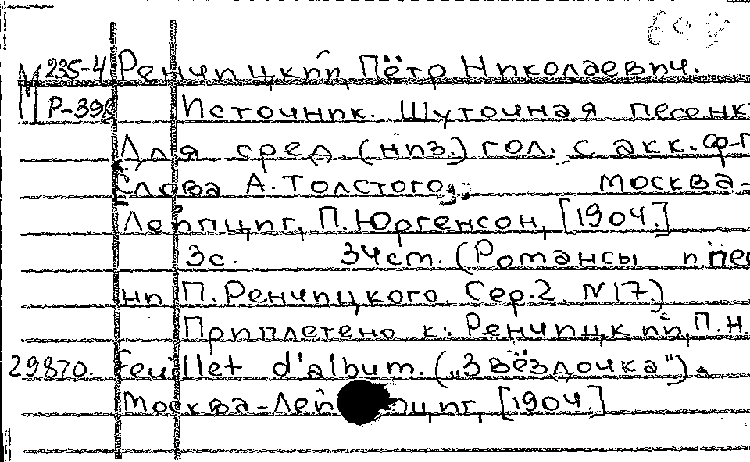 608
М 235-4 Ренчицкий, Пётр Николаевич.
Р-398 Источник. Шуточная песенк
Для сред. (низ.) гол. с акк. ф-п
Слова А. Толстого. Москва-
Лейпциг, П. Юргенсон, [1904.]
3с. 34cm. (Романсы и пес
ни П. Ренчицкого. Сер. 2. N17.)
Приплетено к: Ренчицкий, П.Н.
29870. Feuillet d'album. („Звёздочка").
Москва-Лейпциг, [1904.]